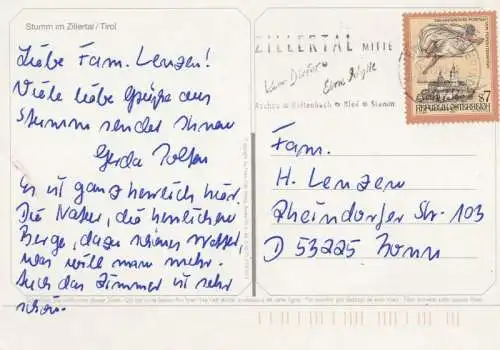 Stumm im Zillertal/Tirol
Liebe Fam. Lenzen!
Viele liebe Grüße aus
Stumm sendet Ihnen
Gerda
Es ist ganz herrlich hier.
Die Natur, die herrlichen
Berge, dazu schönes Wetter,
was will man mehr.
Auch das Zimmer ist sehr
schön.
ZILLERTAL MITTE
Aschau Kaltenbach Ried Stumm
S7
REPUBLIK ÖSTERREICH
Fam.
H. Lenzen
Rheindorfer Str. 103
D 53225 Bonn